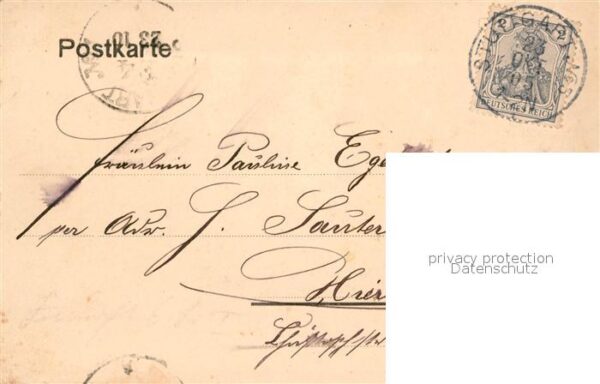 Postkarte
23 10
STUTTGART
23
OKT
DEUTSCHES REICH
Fräulein Pauline Ege
per Adr. J. Sauter
Hier
privacy protection
Datenschutz